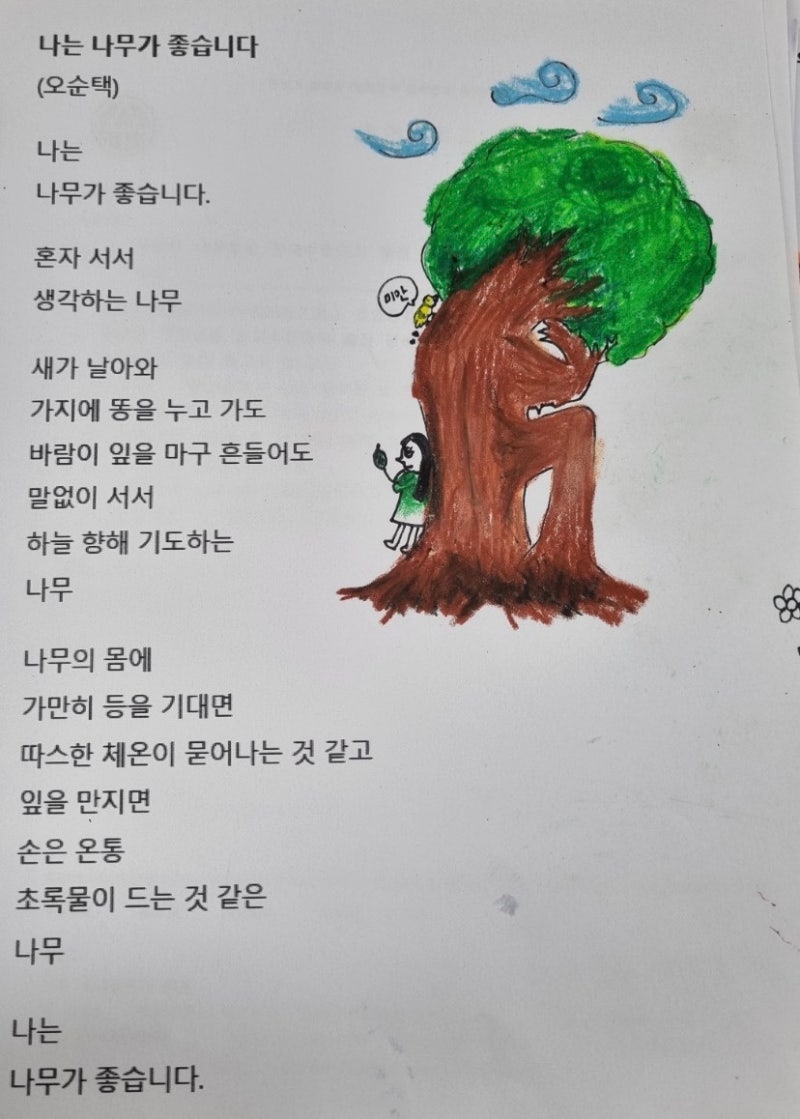 나는 나무가 좋습니다
(오순택)
나는
나무가 좋습니다.
혼자 서서
생각하는 나무
새가 날아와
가지에 똥을 누고 가도
바람이 잎을 마구 흔들어도
말없이 서서
하늘 향해 기도하는
나무
나무의 몸에
가만히 등을 기대면
따스한 체온이 묻어나는 것 같고
잎을 만지면
손은 온통
초록물이 드는 것 같은
나무
나는
나무가 좋습니다.
미안